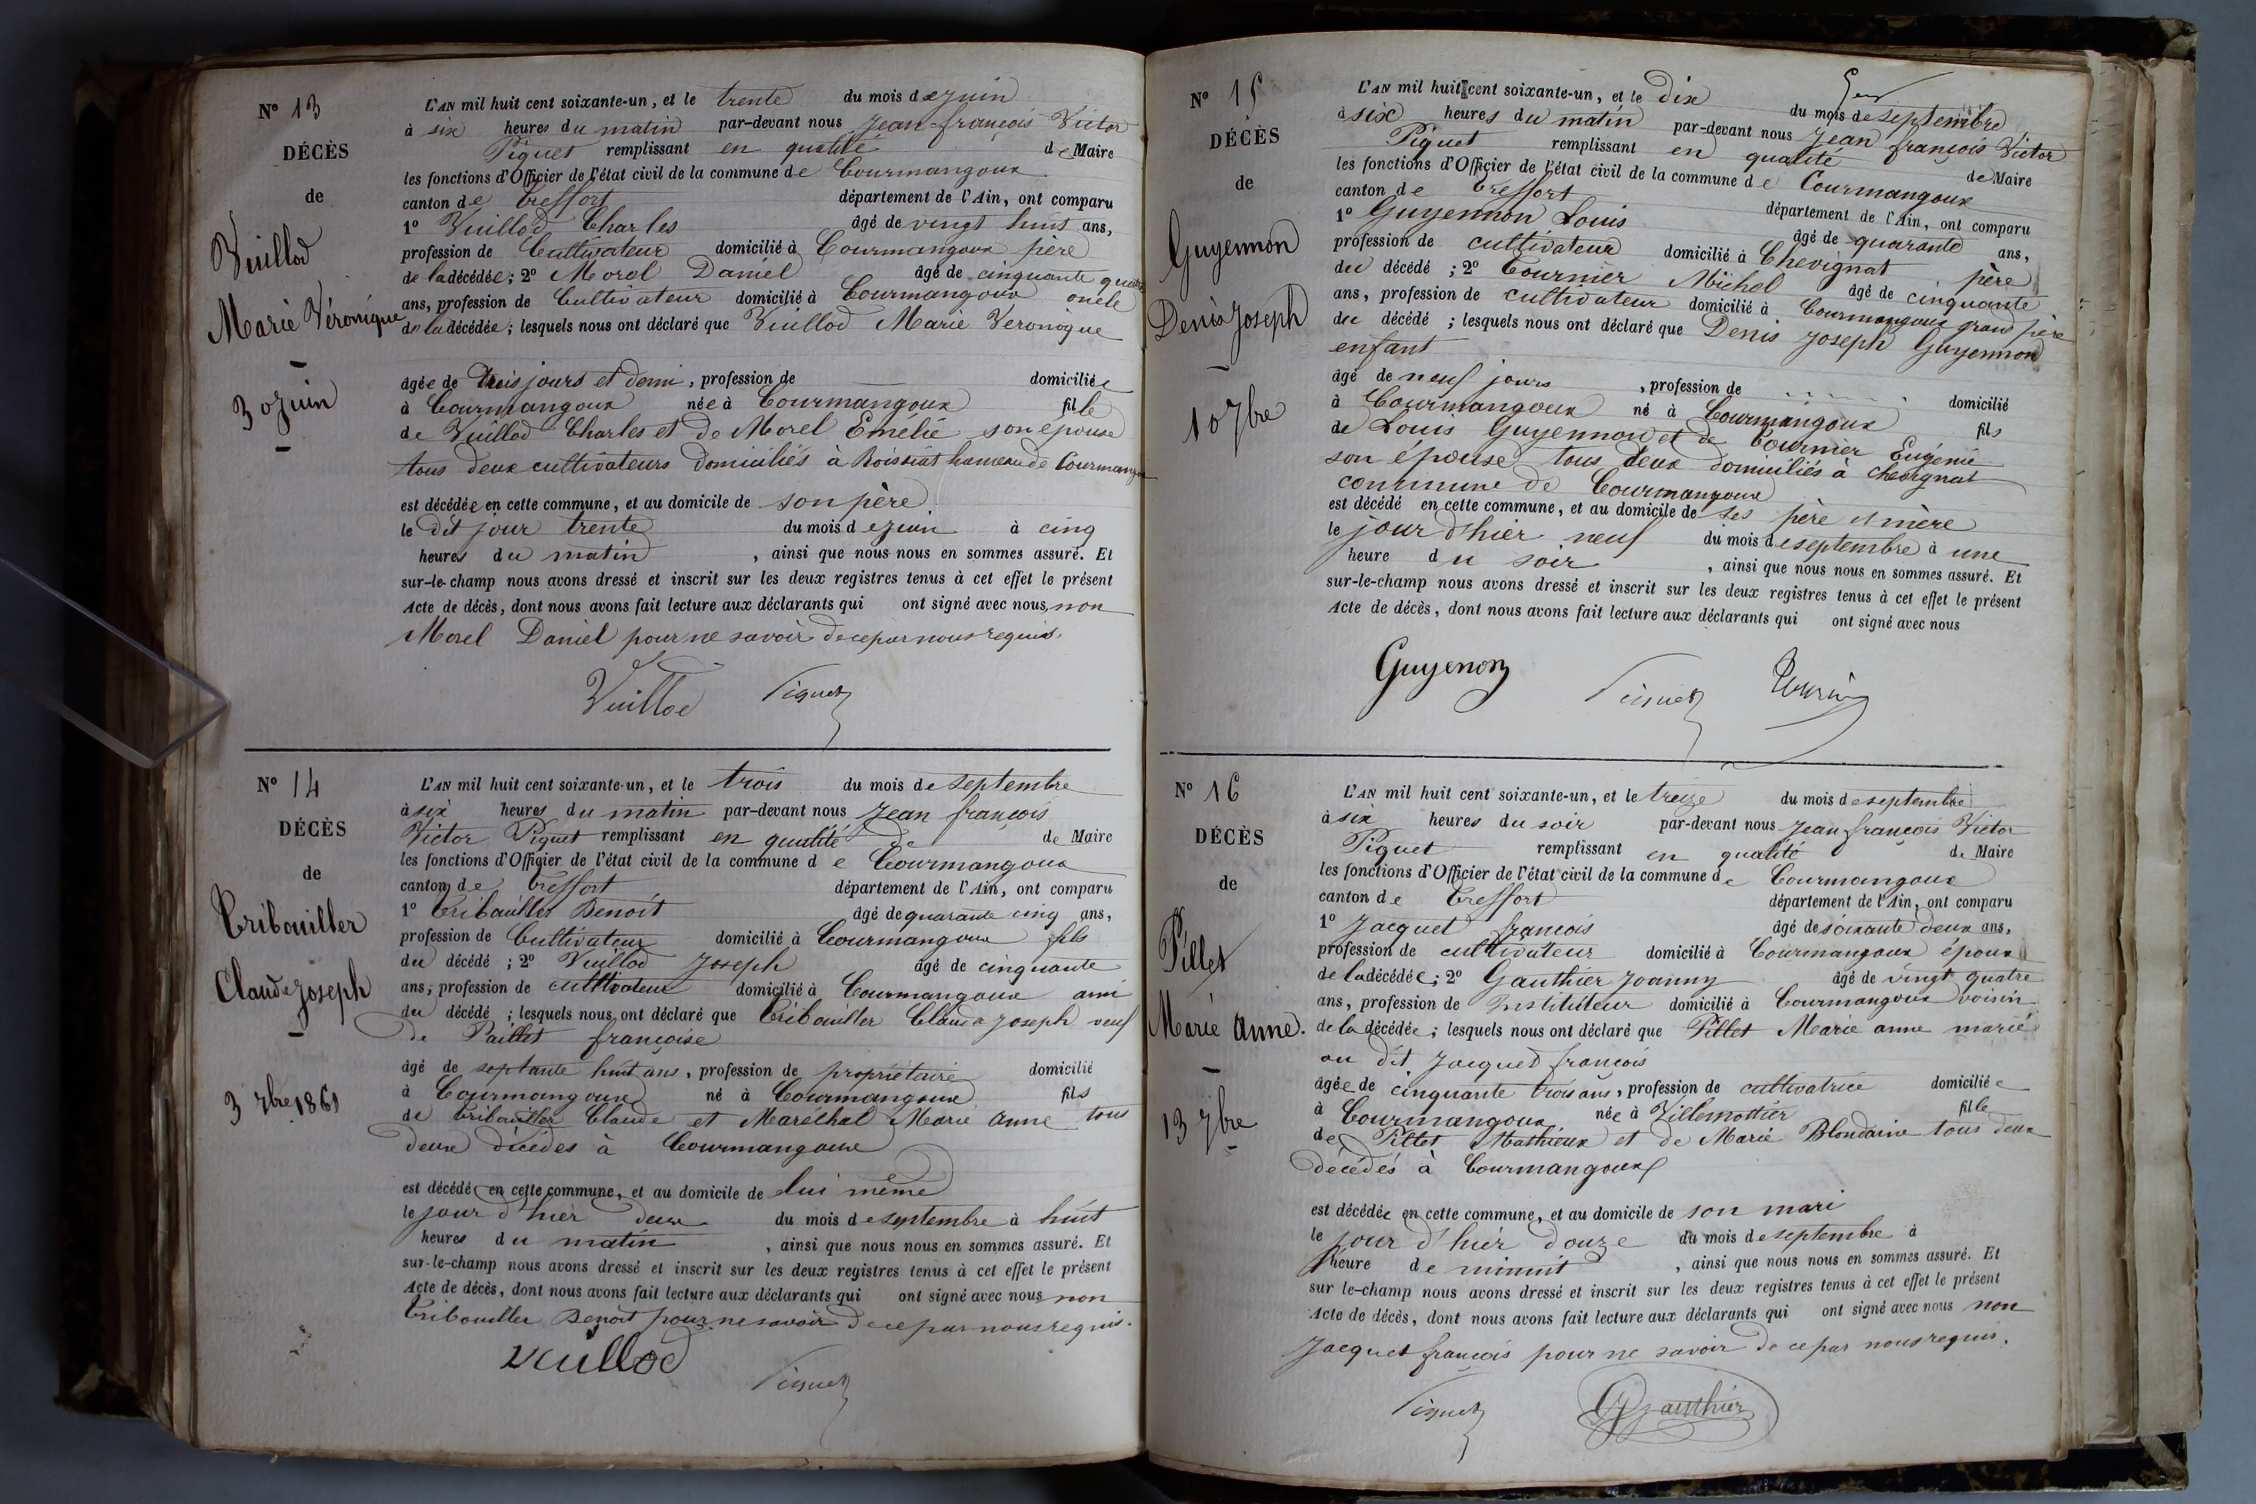 N° 13
DÉCÈS
de
Vuillod
Marie Véronique
30 juin
L'AN mil huit cent soixante-un, et le trente du mois de juin
à six heures du matin par-devant nous Jean-françois Victor
Piquet remplissant en qualité de Maire
les fonctions d'Officier de l'état civil de la commune de Courmangoux
canton de Treffort département de l'Ain, ont comparu
1° Vuillod Charles âgé de vingt huit ans,
profession de Cultivateur domicilié à Courmangoux père
de la décédée; 2° Morel Daniel âgé de cinquante quatre
ans, profession de Cultivateur domicilié à Courmangoux oncle
de la décédée; lesquels nous ont déclaré que Vuillod Marie Veronique
âgée de trois jours et demi, profession de domiciliée
à Courmangoux née à Courmangoux fille
de Vuillod Charles et de Morel Emélie son épouse
tous deux cultivateurs domiciliés à Roissiat hameau de Courmangoux
est décédée en cette commune, et au domicile de son père
le dit jour trente du mois de juin à cinq
heures du matin, ainsi que nous nous en sommes assuré. Et
sur-le-champ nous avons dressé et inscrit sur les deux registres tenus à cet effet le présent
Acte de décès, dont nous avons fait lecture aux déclarants qui ont signé avec nous non
Morel Daniel pour ne savoir de ce par nous requis.
Vuillod Piquet
N° 14
DÉCÈS
de
Tribouiller
Claude Joseph
3 7bre 1861
L'AN mil huit cent soixante-un, et le trois du mois de septembre
à six heures du matin par-devant nous Jean françois
Victor Piquet remplissant en qualité de de Maire
les fonctions d'Officier de l'état civil de la commune de Courmangoux
canton de Treffort département de l'Ain, ont comparu
1° Tribouiller Benoit âgé de quarante cinq ans,
profession de Cultivateur domicilié à Courmangoux fils
du décédé; 2° Vuillod Joseph âgé de cinquante
ans, profession de cultivateur domicilié à Courmangoux ami
du décédé; lesquels nous ont déclaré que Tribouiller Claude Joseph veuf
de Paillet françoise
âgé de septante huit ans, profession de propriétaire domicilié
à Courmangoux né à Courmangoux fils
de Tribouiller Claude et Maréchal Marie Anne tous
deux décédés à Courmangoux
est décédé en cette commune, et au domicile de lui même
le jour d'hier deux du mois de septembre à huit
heures du matin, ainsi que nous nous en sommes assuré. Et
sur-le-champ nous avons dressé et inscrit sur les deux registres tenus à cet effet le présent
Acte de décès, dont nous avons fait lecture aux déclarants qui ont signé avec nous non
Tribouiller Benoit pour ne savoir de ce par nous requis.
Vuillod Piquet
N° 15
DÉCÈS
de
Guyennon
Denis Joseph
10 7bre
L'AN mil huit cent soixante-un, et le dix du mois de septembre
à six heures du matin par-devant nous Jean françois Victor
Piquet remplissant en qualité de Maire
les fonctions d'Officier de l'état civil de la commune de Courmangoux
canton de Treffort département de l'Ain, ont comparu
1° Guyennon Louis âgé de quarante ans,
profession de cultivateur domicilié à Chevignat père
du décédé; 2° Tournier Michel âgé de cinquante
ans, profession de cultivateur domicilié à Courmangoux grand père
du décédé; lesquels nous ont déclaré que Denis Joseph Guyennon
enfant
âgé de neuf jours, profession de domicilié
à Courmangoux né à Courmangoux fils
de Louis Guyennon et de Tournier Eugénie
son épouse tous deux domiciliés à Chevignat
commune de Courmangoux
est décédé en cette commune, et au domicile de ses père et mère
le jour d'hier neuf du mois de septembre à une
heure du soir, ainsi que nous nous en sommes assuré. Et
sur-le-champ nous avons dressé et inscrit sur les deux registres tenus à cet effet le présent
Acte de décès, dont nous avons fait lecture aux déclarants qui ont signé avec nous
Guyenon Piquet
N° 16
DÉCÈS
de
Pillet
Marie Anne.
13 7bre
L'AN mil huit cent soixante-un, et le treize du mois de septembre
à six heures du soir par-devant nous Jean françois Victor
Piquet remplissant en qualité de Maire
les fonctions d'Officier de l'état civil de la commune de Courmangoux
canton de Treffort département de l'Ain, ont comparu
1° Jacquet françois âgé de soixante deux ans,
profession de cultivateur domicilié à Courmangoux époux
de la décédée; 2° Gauthier Joanny âgé de vingt quatre
ans, profession de Instituteur domicilié à Courmangoux voisin
de la décédée; lesquels nous ont déclaré que Pillet Marie anne marié
au dit Jacquet françois
âgée de cinquante trois ans, profession de cultivatrice domiciliée
à Courmangoux née à Villemottier fille
de Pillet Mathieux et de Marie Blondaine tous deux
décédés à Courmangoux
est décédée en cette commune, et au domicile de son mari
le jour d'hier douze du mois de septembre à
heure de minuit, ainsi que nous nous en sommes assuré. Et
sur le-champ nous avons dressé et inscrit sur les deux registres tenus à cet effet le présent
Acte de décès, dont nous avons fait lecture aux déclarants qui ont signé avec nous non
Jacquet françois pour ne savoir de ce par nous requis.
Piquet Gauthier